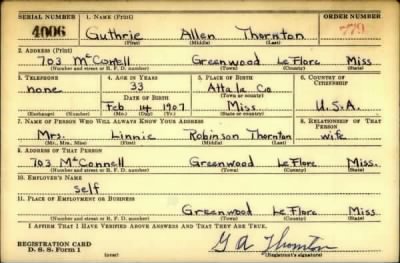 SERIAL NUMBER 1. NAME (Print) ORDER NUMBER
4006 Guthrie Allen Thornton 779
(First) (Middle) (Last)
2. ADDRESS (Print)
703 McConnell Greenwood LeFlore Miss
(Number and street or R. F. D. number) (Town) (County) (State)
3. TELEPHONE 4. AGE IN YEARS 5. PLACE OF BIRTH 6. COUNTRY OF CITIZENSHIP
none 33 Attala Co
DATE OF BIRTH (Town or county)
Feb 14 1907 Miss U.S.A.
(Exchange) (Number) (Mo.) (Day) (Yr.) (State or country)
7. NAME OF PERSON WHO WILL ALWAYS KNOW YOUR ADDRESS 8. RELATIONSHIP OF THAT PERSON
Mrs. Linnie Robinson Thornton wife
(Mr., Mrs., Miss) (First) (Middle) (Last)
9. ADDRESS OF THAT PERSON
703 McConnell Greenwood LeFlore Miss.
(Number and street or R. F. D. number) (Town) (County) (State)
10. EMPLOYER'S NAME
Self
11. PLACE OF EMPLOYMENT OR BUSINESS
Greenwood LeFlore Miss
(Number and street or R. F. D. number) (Town) (County) (State)
I AFFIRM THAT I HAVE VERIFIED ABOVE ANSWERS AND THAT THEY ARE TRUE.
REGISTRATION CARD G A Thornton
D. S. S. Form 1 (over) (Registrant's signature)